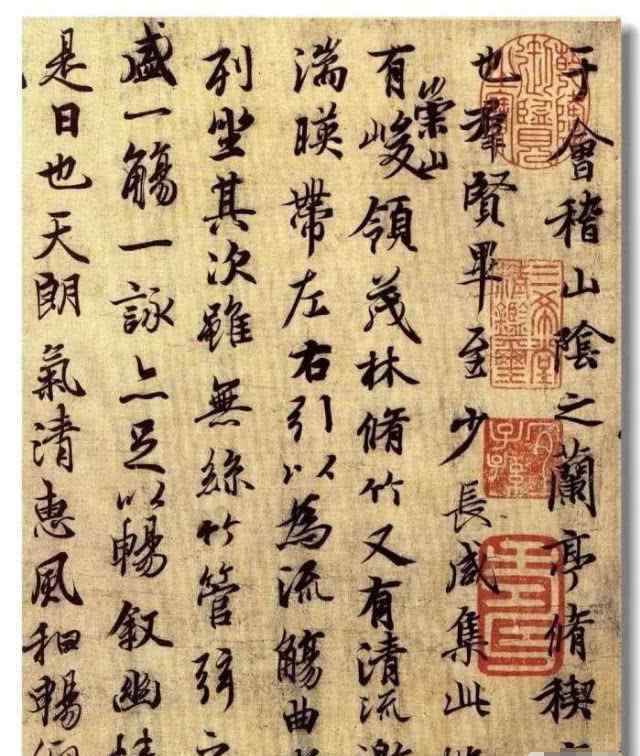 于會稽山陰之蘭亭脩稧
也羣賢畢至少長咸集此
有崇山峻領茂林脩竹又有清流激
湍暎帶左右引以為流觴曲
列坐其次雖無絲竹管弦之
盛一觴一詠亦足以暢敘幽情
是日也天朗氣清惠風和暢
三希堂精鑑璽
宜子孫